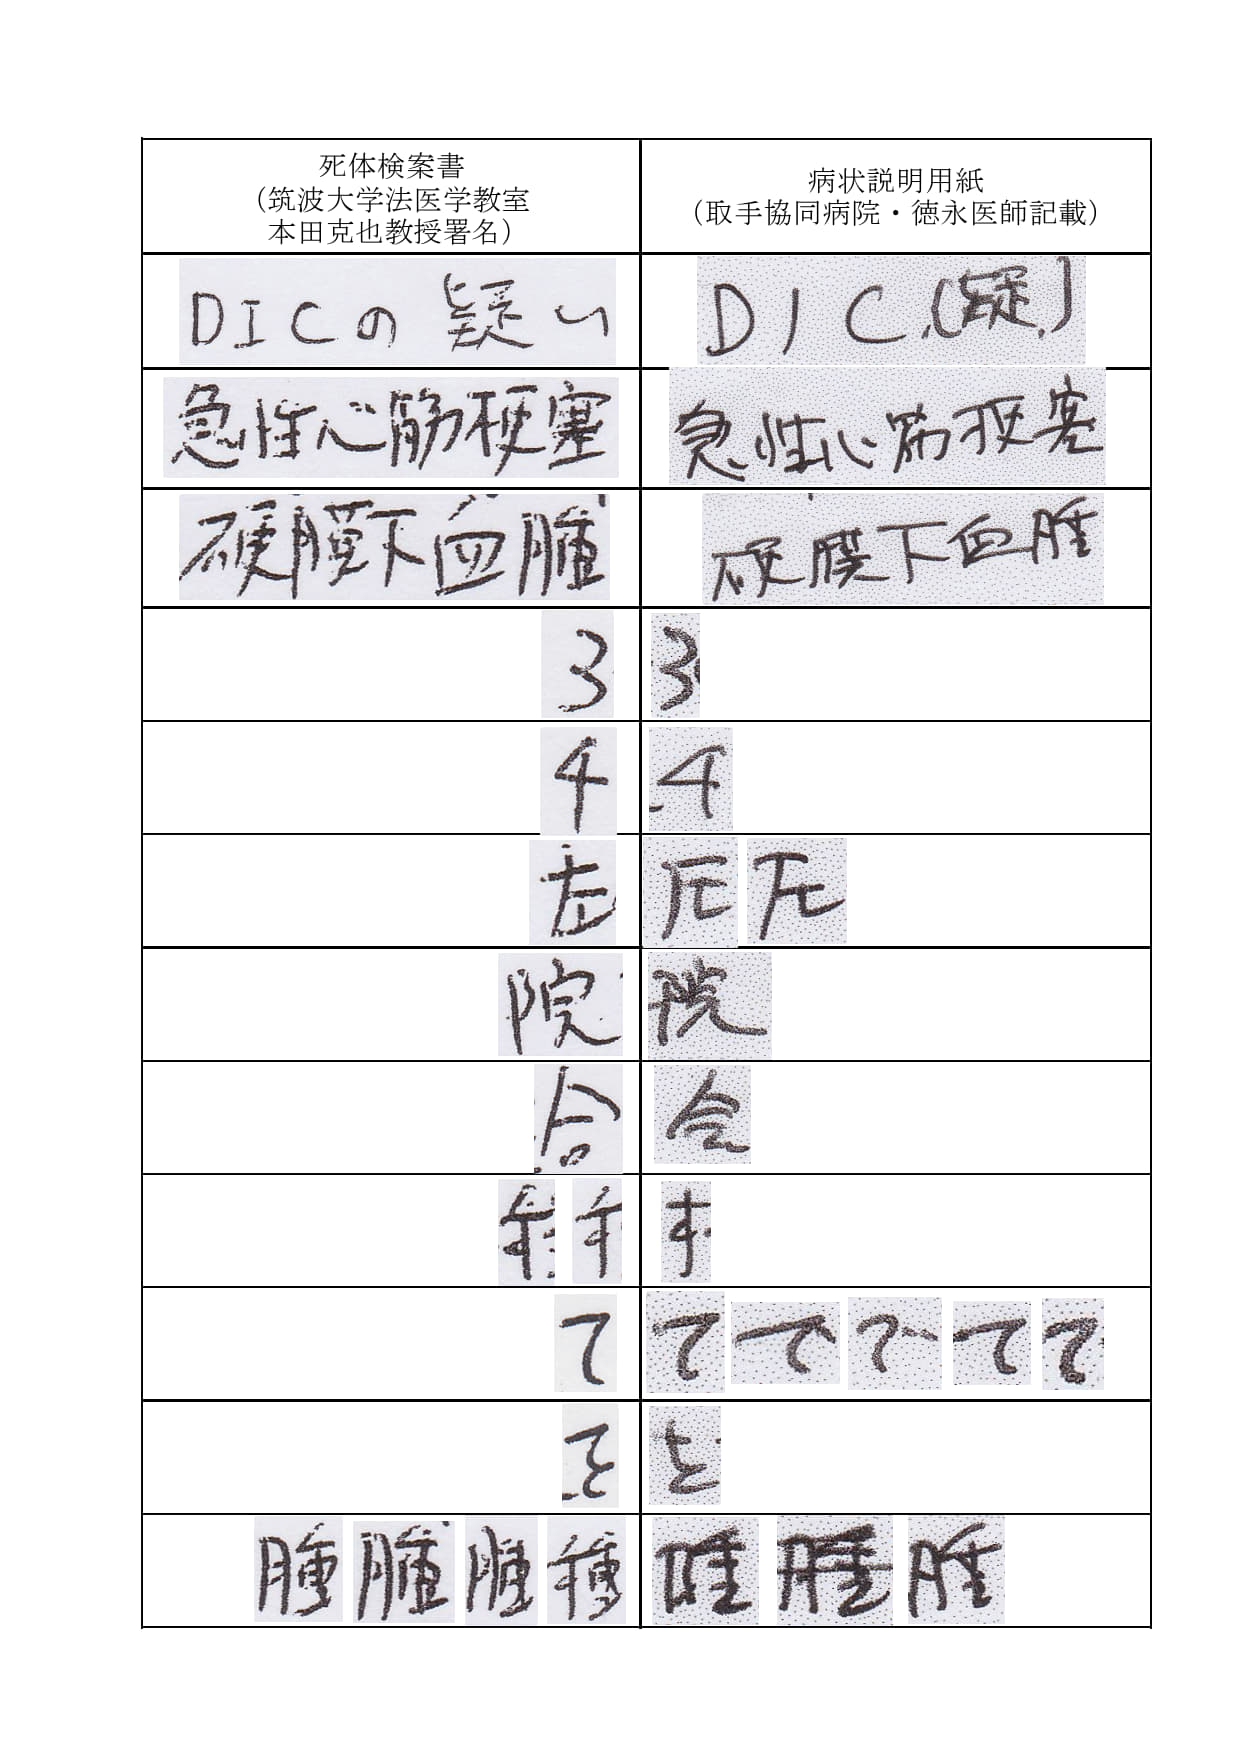 死体検案書
（筑波大学法医学教室
本田克也教授署名）
病状説明用紙
（取手協同病院・徳永医師記載）
DICの疑い
DIC（疑）
急性心筋梗塞
急性心筋梗塞
硬膜下血腫
硬膜下血腫
3
3
4
4
左
左 左
院
院
合
合
て
て て て て て
と
と
腫 腫 腫 種
腫 腫 腫